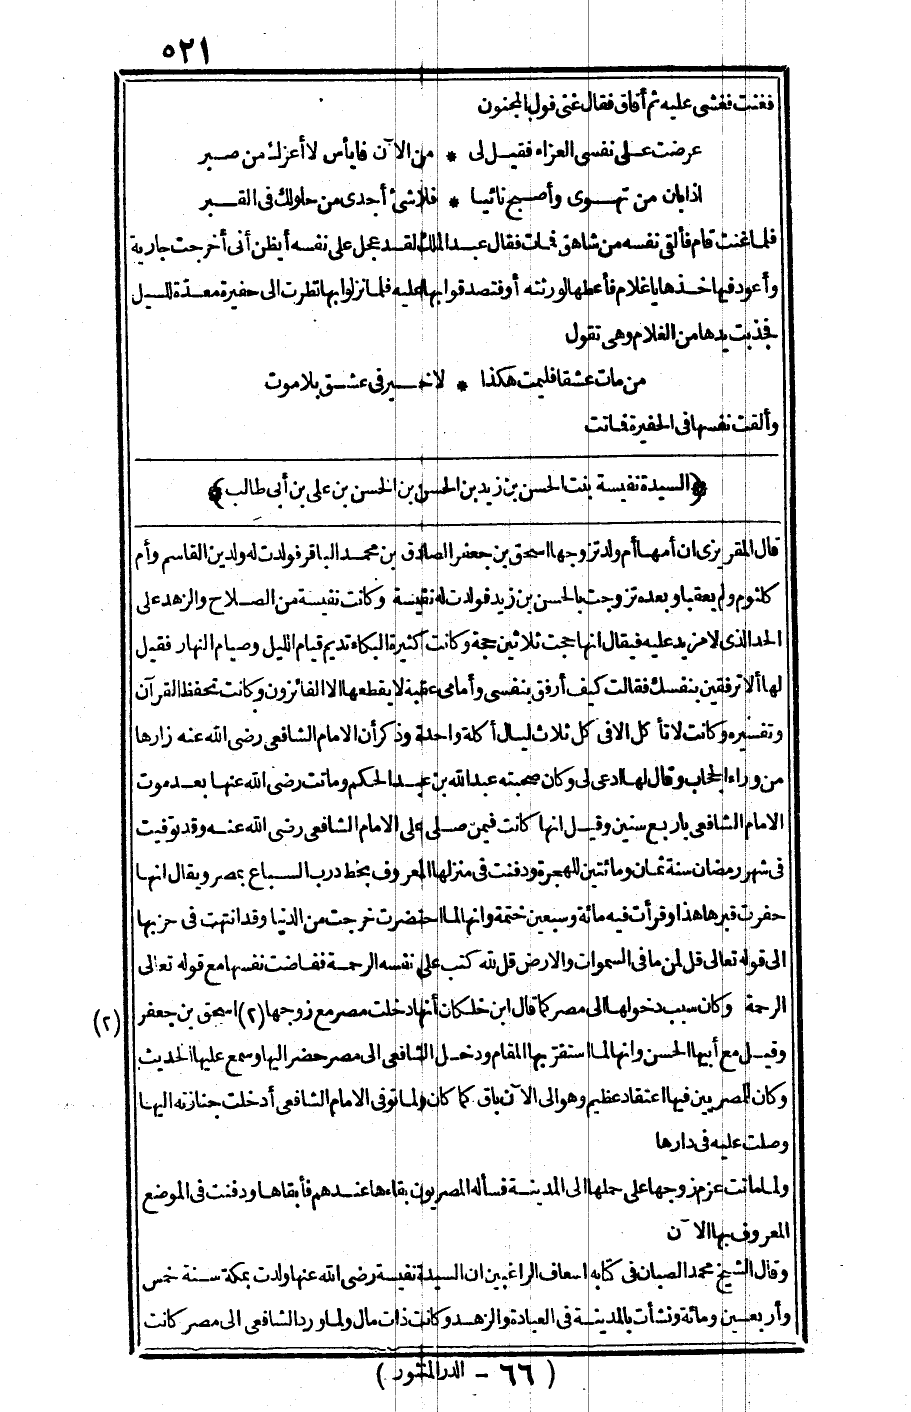 ٥٢١
فغنت فغشى عليه ثم أفاق فقال غنى قول المجنون
عرضت على نفسى العزاء فقيل لى * من الآن فايأس لا أعزك من صبر
اذا بان من تهوى وأصبح نائيا * فلا شئ أجدى من حلولك فى القبر
فلما غنت قام فألقى نفسه من شاهق فمات فقال عبد الملك لقد عجل على نفسه أيظن أنى أخرجت جارية
وأعود فيها خذها ياغلام فأعطها لورثته أو فتصدقوا بها عليه فلما نزلوا بها نظرت الى حفيرة معدة للسيل
فجذبت يدها من الغلام وهى تقول
من مات عشقا فليمت هكذا * لا خير فى عشق بلا موت
وألقت نفسها فى الحفيرة فماتت
﴿السيدة نفيسة بنت الحسن بن زيد بن الحسن بن الحسن بن على بن أبى طالب﴾
قال المقريزى ان أمها أم ولد تزوجها اسحق بن جعفر الصادق بن محمد الباقر فولدت له ولدين القاسم وأم
كلثوم ولم يعقبا وبعده تزوجت بالحسن بن زيد فولدت له نفيسة وكانت نفيسة من الصلاح والزهد على
الحد الذى لا مزيد عليه فيقال انها حجت ثلاثين حجة وكانت كثيرة البكاء تديم قيام الليل وصيام النهار فقيل
لها ألا ترفقين بنفسك فقالت كيف أرفق بنفسى وأمامى عقبة لا يقطعها الا الفائزون وكانت تحفظ القرآن
وتفسيره وكانت لا تأكل الا فى كل ثلاث ليال أكلة واحدة وذكر أن الامام الشافعى رضى الله عنه زارها
من وراء الحجاب وقال لها ادعى لى وكان صحبته عبد الله بن عبد الحكم وماتت رضى الله عنها بعد موت
الامام الشافعى باربع سنين وقيل انها كانت فيمن صلى على الامام الشافعى رضى الله عنه وقد توفيت
فى شهر رمضان سنة ثمان ومائتين للهجرة ودفنت فى منزلها المعروف بخط درب السباع بمصر ويقال انها
حفرت قبرها هذا وقرأت فيه مائة وسبعين ختمة وانها لما احتضرت خرجت من الدنيا وقد انتهت فى حزبها
الى قوله تعالى قل لمن ما فى السموات والارض قل لله كتب على نفسه الرحمة ففاضت نفسها مع قوله تعالى
الرحمة وكان سبب دخولها الى مصر كما قال ابن خلكان أنها دخلت مصر مع زوجها (٢) اسحق بن جعفر (٢)
وقيل مع أبيها الحسن وانها لما استقر بها المقام ودخل الشافعى الى مصر حضر اليها وسمع عليها الحديث
وكان للمصريين فيها اعتقاد عظيم وهو الى الآن باق كما كان ولما توفى الامام الشافعى أدخلت جنازته اليها
وصلت عليه فى دارها
ولما ماتت عزم زوجها على حملها الى المدينة فسأله المصريون بقاءها عندهم فأبقاها ودفنت فى الموضع
المعروف بها الآن
وقال الشيخ محمد الصبان فى كتابه اسعاف الراغبين ان السيدة نفيسة رضى الله عنها ولدت بمكة سنة خمس
وأربعين ومائة ونشأت بالمدينة فى العبادة والزهد وكانت ذات مال ولما ورد الشافعى الى مصر كانت
(٦٦ – الدر المنثور)